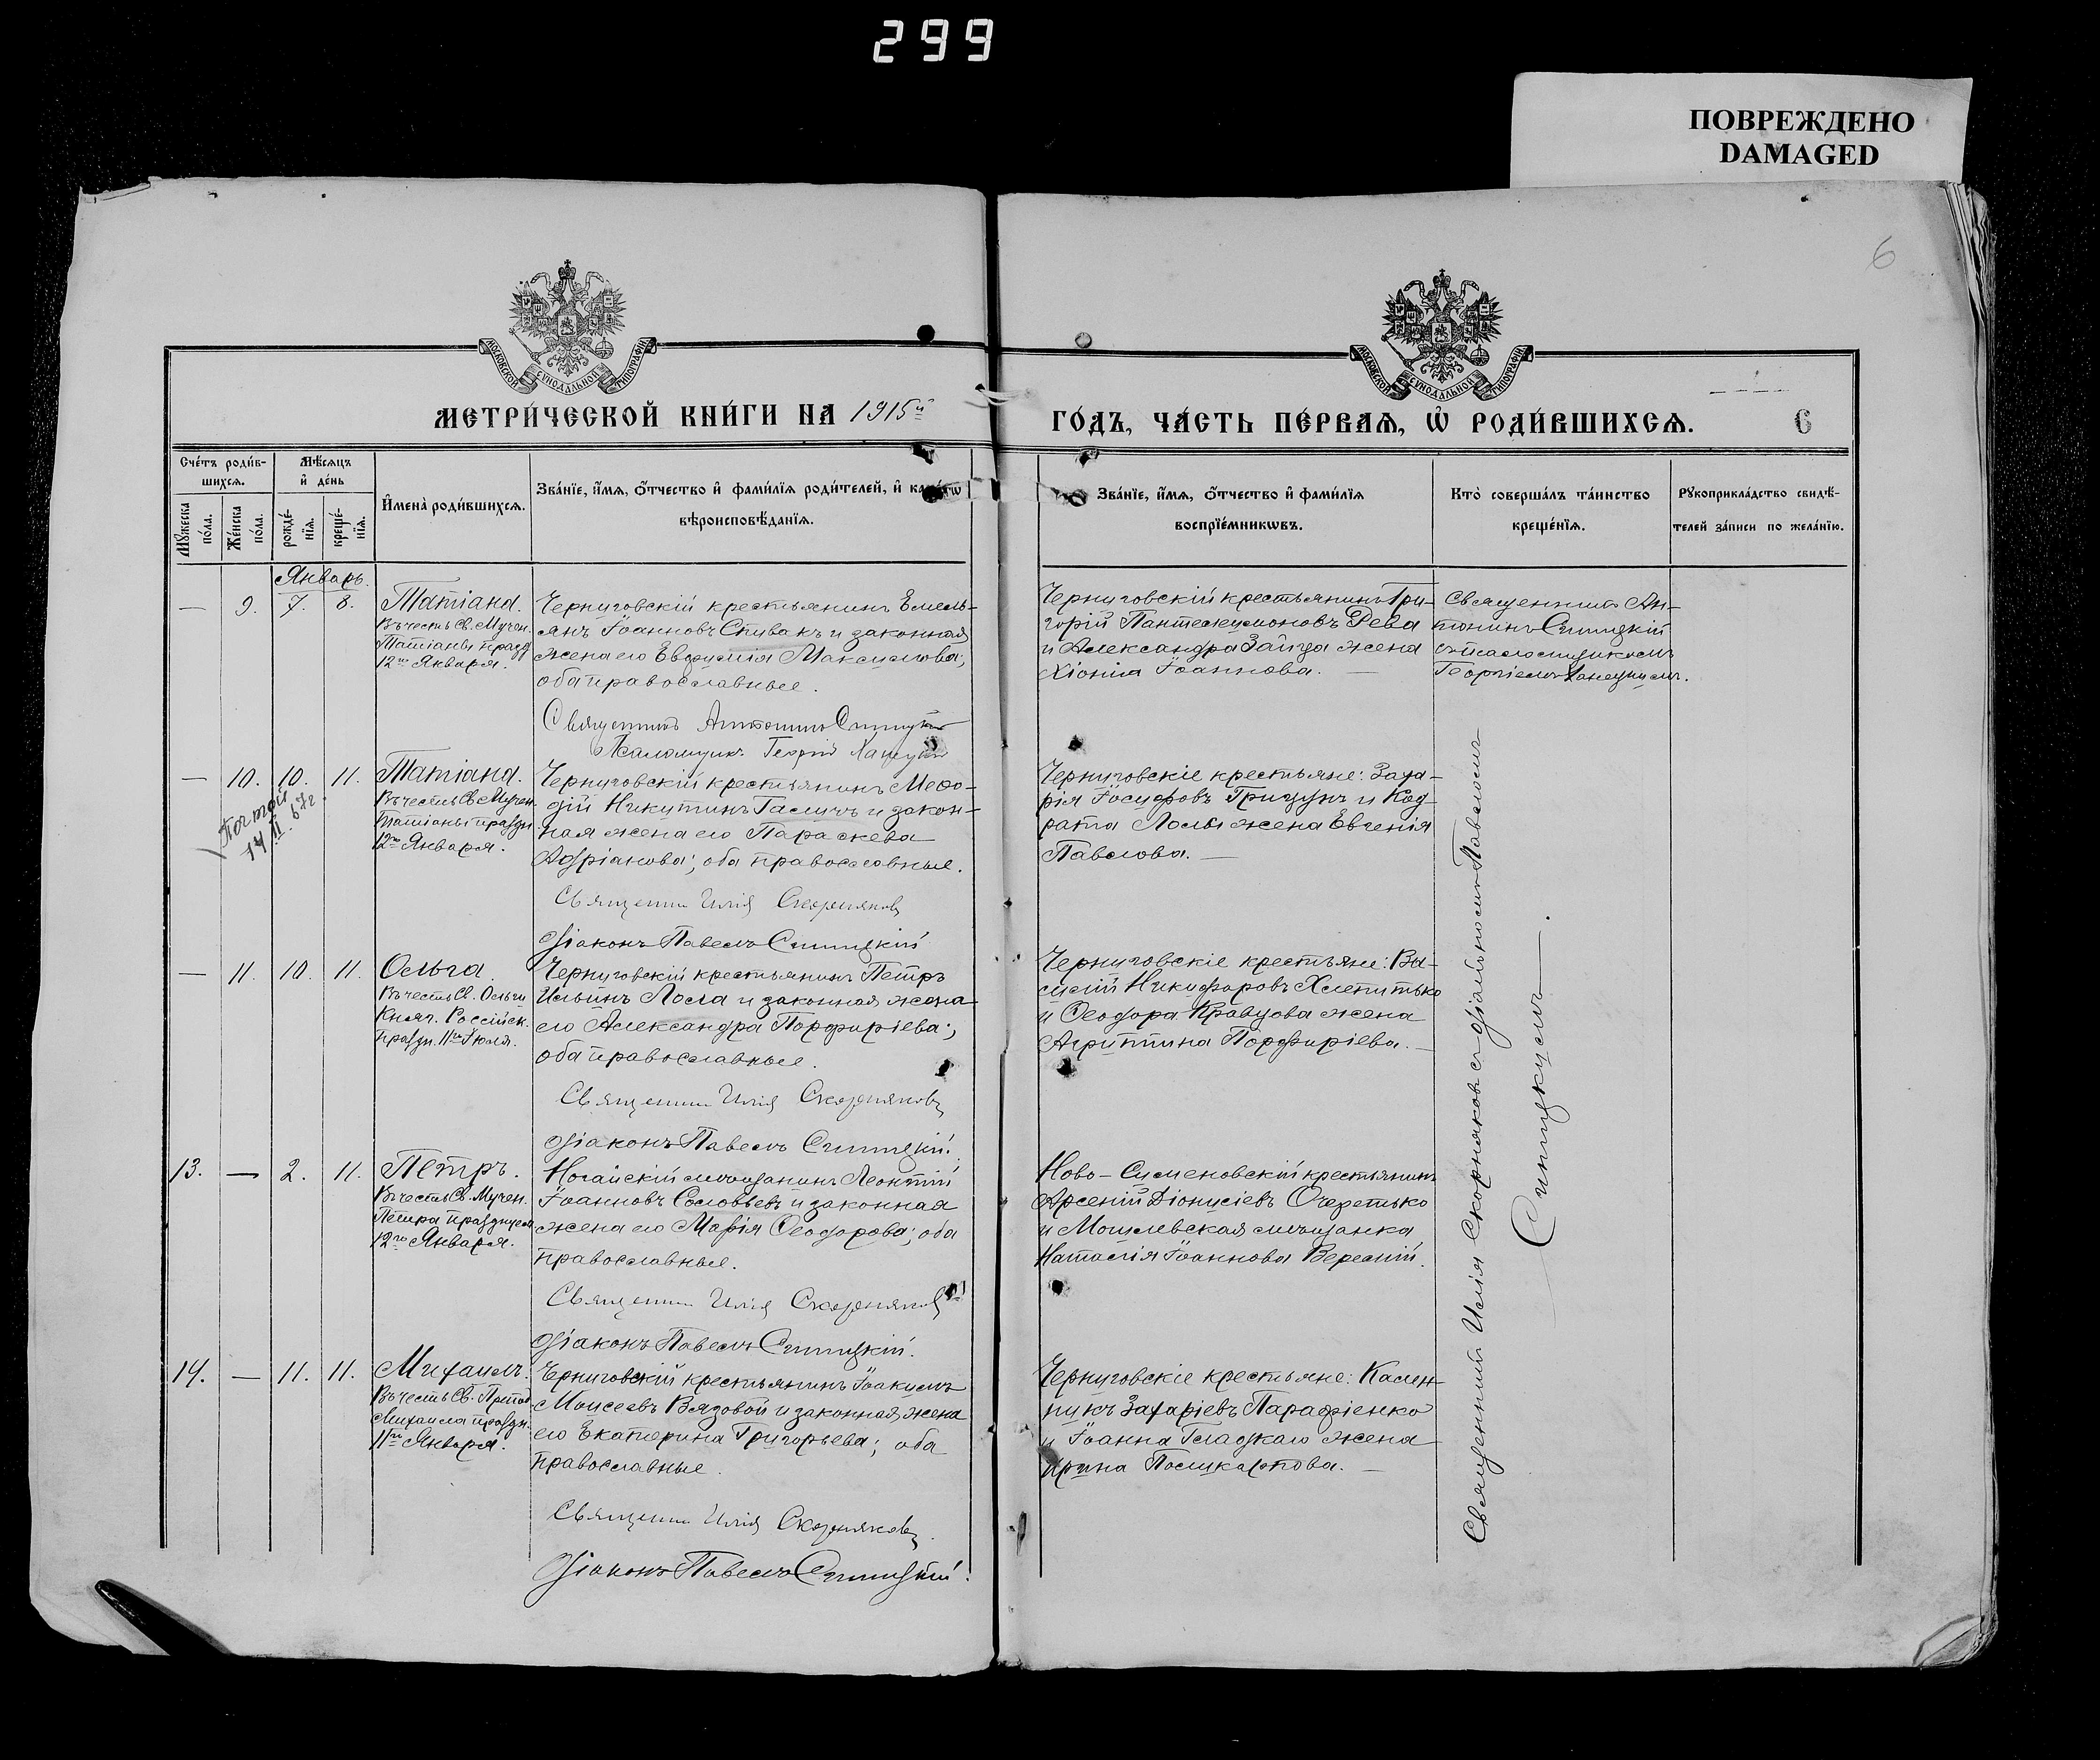 299
ПОВРЕЖДЕНО
DAMAGED
6
МОСКОВСКОЙ СѴНОДАЛЬНОЙ ТИПОГРАФІИ
МОСКОВСКОЙ СѴНОДАЛЬНОЙ ТИПОГРАФІИ
МЕТРИ́ЧЕСКОЙ КНИ́ГИ НА 1915й
ГО́ДЪ, ЧА́СТЬ ПЕ́РВАѦ, Ѡ҆ РОДИ́ВШИХСѦ.
6
Сче́тъ роди́в-
шихсѧ.
Мѣ́сѧцъ
и҆ де́нь
Мꙋ́жеска
по́ла.
Же́нска
по́ла.
рожде́-
нїѧ.
креще́-
нїѧ.
И҆мена̀ роди́вшихсѧ.
Зва́нїе, и҆́мѧ, ѻ҆́тчество и҆ фами́лїѧ роди́телей, и҆ како́гѡ
вѣроисповѣ́данїѧ.
Зва́нїе, и҆́мѧ, ѻ҆́тчество и҆ фами́лїѧ
воспрїе́мникѡвъ.
Кто̀ соверша́лъ та́инство
креще́нїѧ.
Рꙋкоприкла́дство свидѣ́-
телей за́писи по жела́нїю.
Январь.
— 9. 7. 8.
Татіана.
Въ честь Св. Мучен.
Татіаны празд.
12го Января.
Черниговскій крестьянинъ Емель-
янъ Іоанновъ Спивакъ и законная
жена его Евфимія Максимова;
оба православные.
Священникъ Антонинъ Синицкій
Псаломщикъ Георгій
Черниговскій крестьянинъ Гри-
горій Пантелеимоновъ Рева
и Александра Зайца жена
Хіонія Іоаннова. —
Священникъ Ан-
тонинъ Синицкій
съ псаломщикомъ
Георгіемъ
— 10. 10. 11.
Почтой
14 II. 67г.
Татіана.
Въ честь Св. Мучен.
Татіаны праздн.
12го Января.
Черниговскій крестьянинъ Меѳо-
дій Никитинъ Галичъ и закон-
ная жена его Параскева
Адріанова; оба православные.
Священник Илія Скорняковъ
Діаконъ Павелъ Синицкій
Черниговскіе крестьяне: Заха-
рія Іосифовъ Грицунъ и Код-
рата Лолы жена Евгенія
Павлова. —
— 11. 10. 11.
Ольга.
Въ честь Св. Ольги
Княг. Россійск.
праздн. 11го Іюля.
Черниговскій крестьянинъ Петръ
Ильинъ Лола и законная жена
его Александра Порфиріева;
оба православные.
Священник Илія Скорняковъ
Діаконъ Павелъ Синицкій.
Черниговскіе крестьяне: Ва-
силій Никифоровъ Хлепитько
и Ѳеодора Кравцова жена
Агриппина Порфиріева. —
13. — 2. 11.
Петръ.
Въ честь Св. Мучен.
Петра празднуем.
12го Января.
Ногайскій мѣщанинъ Леонтій
Іоанновъ Соловьевъ и законная
жена его Марія Ѳеодорова; оба
православные.
Священник Илія Скорняковъ
Діаконъ Павелъ Синицкій.
Ново-Сименовскій крестьянинъ
Арсеній Діонисіевъ Очеретько
и Могилевская мѣщанка
Наталія Іоаннова Веремій.
14. — 11. 11.
Михаилъ.
Въ честь Св. Препод.
Михаила праздн.
11го Января.
Черниговскій крестьянинъ Іоакимъ
Моисеевъ Вязовой и законная жена
его Екатерина Григорьева; оба
православные.
Священник Илія Скорняковъ.
Діаконъ Павелъ Синицкій.
Черниговскіе крестьяне: Калин-
никъ Захаріевъ Парафіенко
и Іоанна Гладкаго жена
Ирина Поликарпова. —
Священникъ Илія Скорняковъ съ діакономъ Павломъ
Синицкимъ.